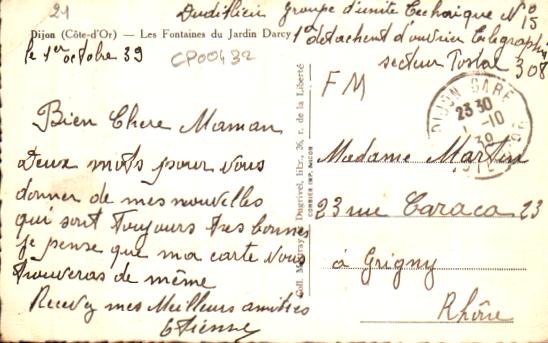 21
Groupe d'unité Technique N° 15
Dijon (Côte-d'Or) — Les Fontaines du Jardin Darcy
1er detachent d'ouvrier telegraphi
le 1er octobre 39
CP00432
secteur Postal 308
FM
DIJON GARE
23 30
1 -10
39
CÔTE D'OR
Bien Chere Maman
Deux mots pour vous
donner de mes nouvelles
qui sont toujours tres bonnes
je pense que ma carte vous
trouveras de même
Recevez mes Meilleurs amitiés
Etienne
Dugrivel, libr., 36, r. de la Liberté
COMBIER IMP. MACON
Madame Martin
23 rue Caraca 23
à Grigny
Rhône